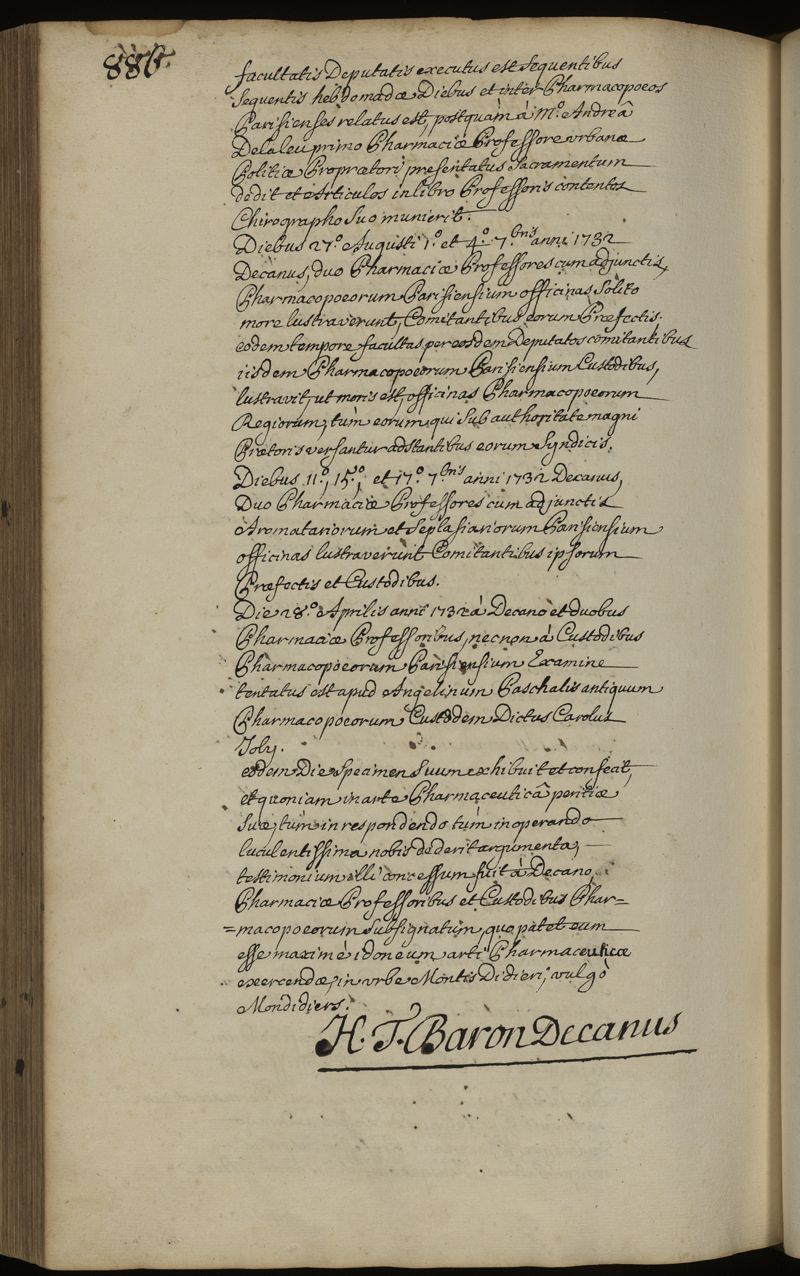 886.
facultatis Deputatis executus est sequentibus
sequentis hebdomadæ Diebus et inter Pharmacopoeos
Parisienses relatus est, postquàm à M.º Andreâ
Delaleu primo Pharmaciæ Professore urbanæ
Politiæ Propraetori presentatus Sacramentum
dedit et Articulos in libro Professoris contentos
Chirographo suo munierit.
Diebus 27.º Augusti 1.º et 4.º 7.bris anni 1732
Decanus, duo Pharmaciæ Professores cum adjunctis,
Pharmacopoeorum Parisiensium officinas solito
more lustraverunt, Comitantibus eorum Præfectis.
eodem tempore facultas per eosdem Deputatos comitantibus
iisdem Pharmacopoeorum Parisiensium Custodibus,
lustravit, ut moris est, officinas Pharmacopoeorum
Regiorum, tùm eorum qui sub authoritate magni
Prætoris versantur adstantibus eorum Syndicis.
Diebus 11.º, 15.º, et 17.º 7.bris anni 1732 Decanus,
Duo Pharmaciæ Professores cum adjunctis
Aromatariorum et Seplasiariorum Parisiensium
officinas lustraverunt Comitantibus ipsorum
Præfectis et Custodibus.
Die 28.º Aprilis anni 1732 à Decano et duobus
Pharmaciæ Professoribus, necnon à Custodibus
Pharmacopoeorum Parisiensium Examine
tentatus est apud Angelinum Paschalis antiquum
Pharmacopoeorum Custodem Dictus Carolus
Joly.
eodem Die Specimen suum exhibuit et confecit,
et quoniam in arte Pharmaceuticâ peritiæ
suæ, tùm in respondendo tùm in operando
luculentissima nobis dederit argumenta,
testimonium illi concessum fuit à Decano,
Pharmaciæ Professoribus et Custodibus Phar=
=macopoeorum subsignatum, quo patet eum
esse maximè idoneum arti Pharmaceuticæ
exercendæ, in urbe Montis Didieri, vulgò
Mondidiers.
H. T. Baron Decanus